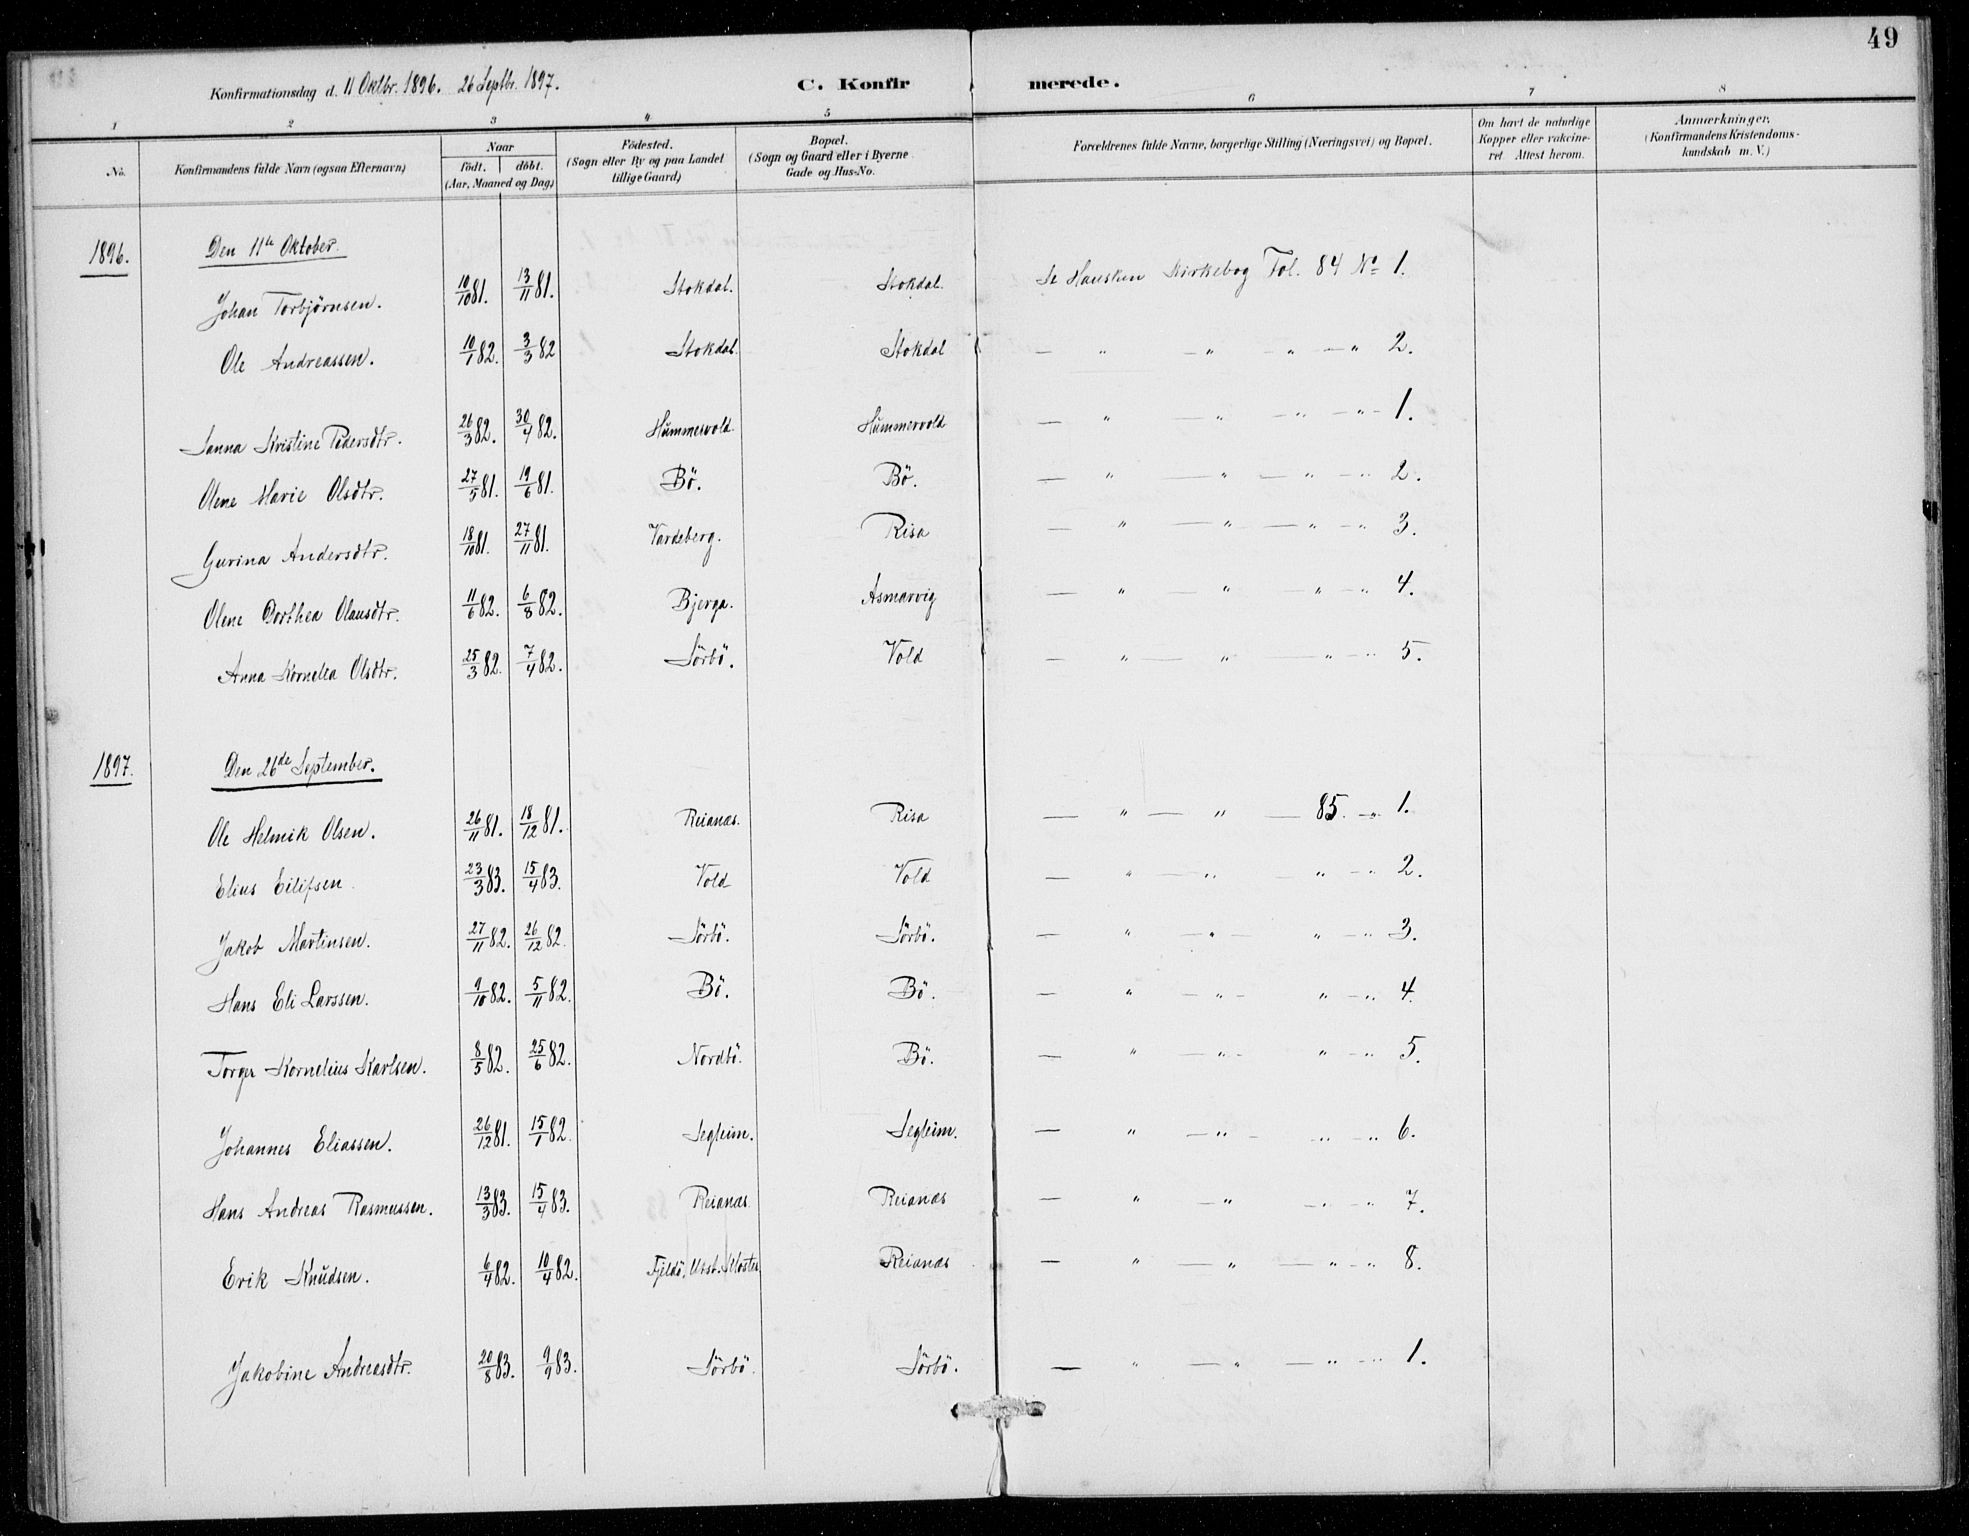 49
Konfirmationsdag d. 11 Oktbr. 1896. 26 Septbr. 1897. C. Konfirmerede.
1 2 3 4 5 6 7 8
No. Konfirmandens fulde Navn (ogsaa Efternavn) Naar födt. döbt. (Aar, Maaned og Dag) Födested. (Sogn eller By og paa Landet tillige Gaard) Bopæl. (Sogn og Gaard eller i Byerne Gade og Hus-No. Forældrenes fulde Navne, borgerlige Stilling (Næringsvei) og Bopæl. Om havt de naturlige Kopper eller vakcineret. Attest herom. Anmærkninger. (Konfirmandens Kristendomskundskab m. V.)
1896. Den 11te Oktober.
Johan Torbjörnsen. 10/10 81. 13/11 81. Stokdal. Stokdal. Se Hausken Kirkebog Fol. 84 No 1.
Ole Andreassen. 10/1 82. 3/3 82 Stokdal. Stokdal — " — " — " — " 2.
Sanna Kristine Pedersdtr. 26/3 82. 30/4 82. Hummervold. Hummervold — " — " — " — " — 1.
Olene Marie Olsdtr. 27/5 81. 19/6 81. Bö. Bö. — " — " — " — " 2.
Gurina Andersdtr. 18/10 81. 27/11 81. Vardeberg. Risa — " — " — " — " 3.
Olene Dorthea Olausdtr. 11/6 82. 6/8 82. Bjerga. Asmarvig — " — " — " — " 4.
Anna Kornelia Olsdtr. 25/3 82. 7/4 82. Sörbö. Vold — " — " — " — " 5.
1897. Den 26de September.
Ole Helmik Olsen. 26/11 81. 18/12 81. Reianæs. Risa — " — " — 85. — " 1.
Elius Eilifsen. 23/3 83. 15/4 83. Vold Vold — " — " — " — " 2.
Jakob Martinsen. 27/11 82. 26/12 82. Sörbö. Sörbö. — " — " — " — " 3.
Hans Eli Larssen. 9/10 82. 5/11 82. Bö. Bö. — " — " — " — " 4.
Torger Kornelius Karlsen. 8/5 82. 25/6 82. Nordbö. Bö. — " — " — " — " 5.
Johannes Eliassen. 26/12 81. 15/1 82. Segleim. Segleim. — " — " — " — " 6.
Hans Andreas Rasmussen. 13/3 83. 15/4 83. Reianæs. Reianæs — " — " — " — " 7.
Erik Knudsen. 6/4 82. 10/4 82. Fjeldö, Utst. Kloster Reianæs — " — " — " — " 8.
Jakobine Andreasdtr. 20/8 83. 9/9 83. Sörbö. Sörbö. — " — " — " — " 1.